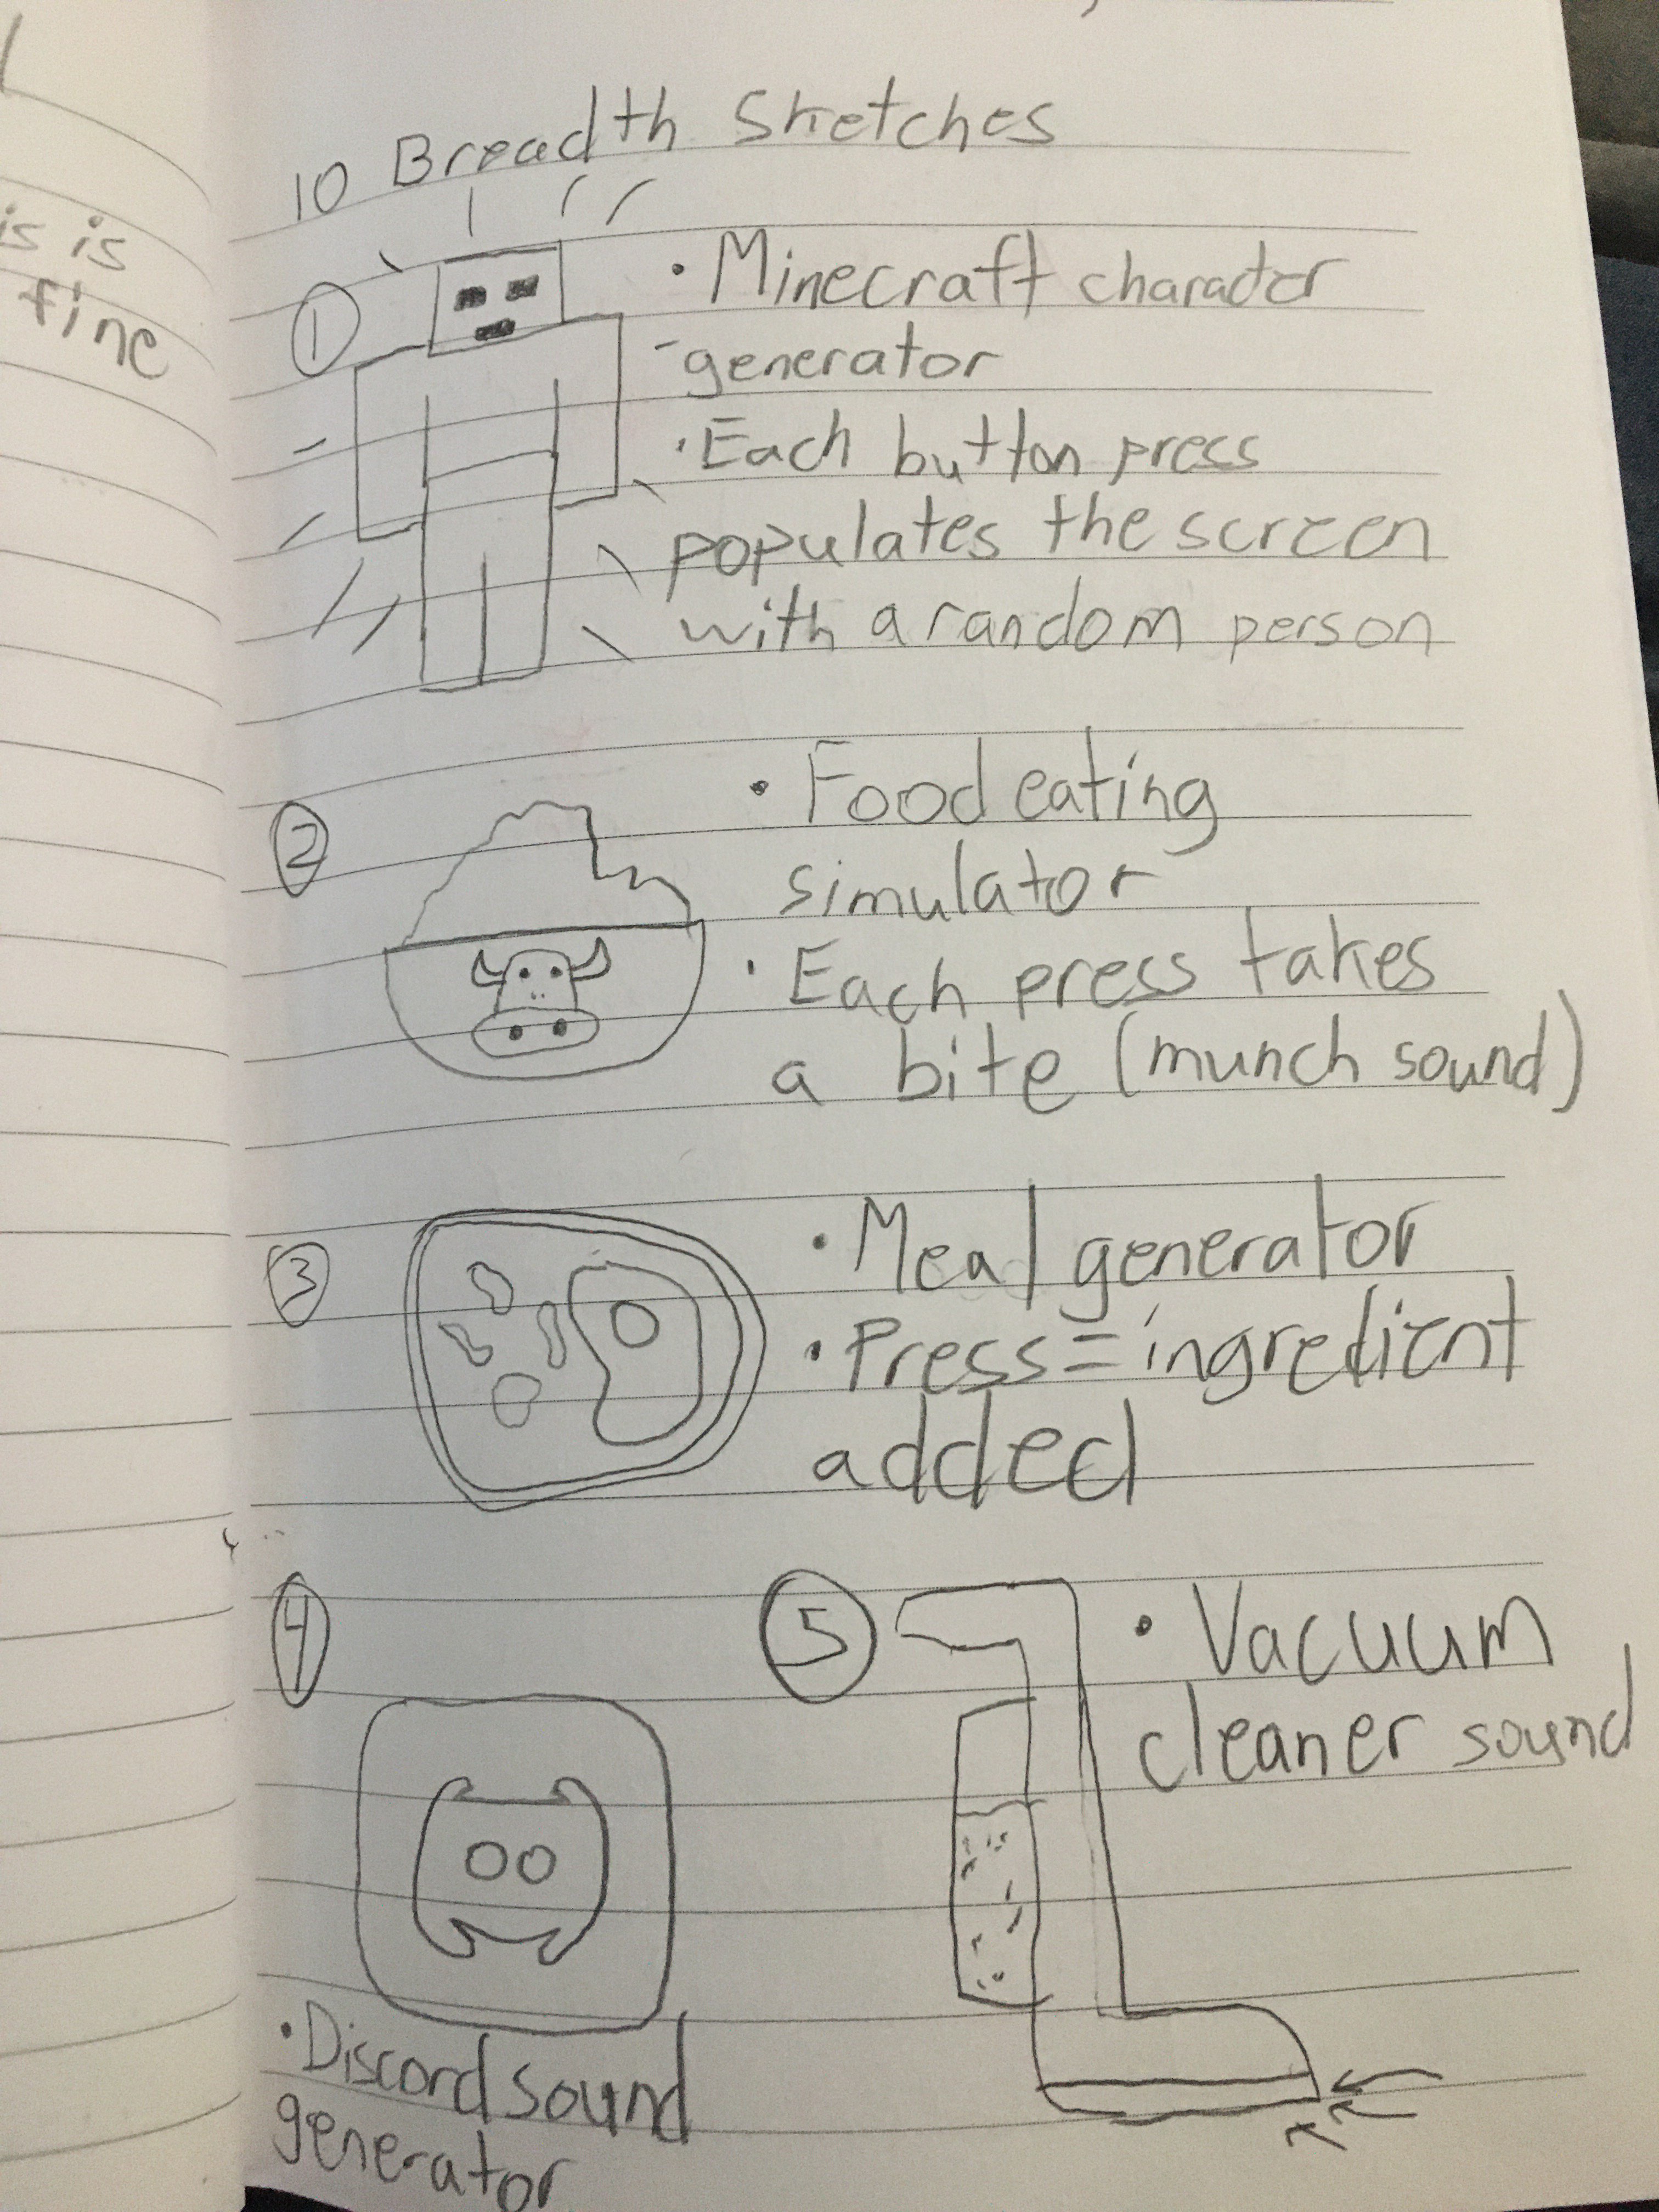 is is
fine
10 Breadth Sketches
① • Minecraft character
-generator
• Each button press
populates the screen
with a random person
② • Food eating
simulator
• Each press takes
a bite (munch sound)
③ • Meal generator
• Press = ingredient
added
④
• Discord sound
generator
⑤ • Vacuum
cleaner sound